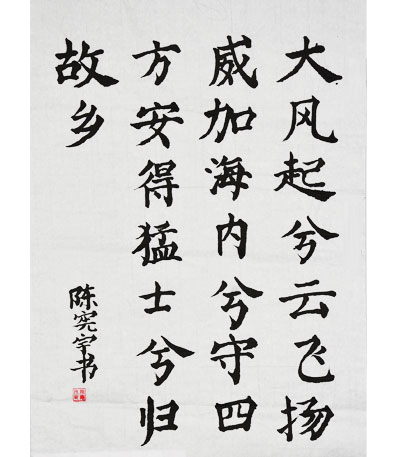 大风起兮云飞扬
威加海内兮守四
方安得猛士兮归
故乡
陈宪宇书